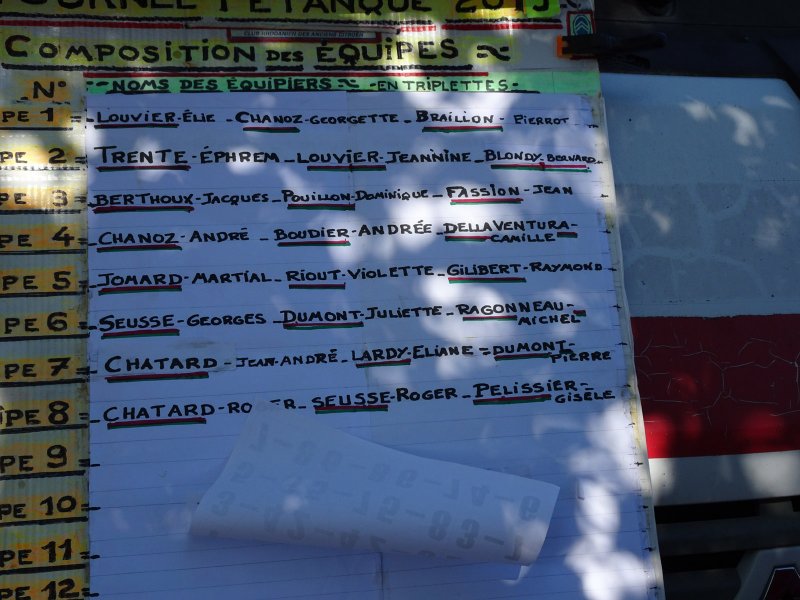 PÉTANQUE 2015
CLUB RHODANIEN DES
COMPOSITION DES ÉQUIPES
N° NOMS DES ÉQUIPIERS - EN TRIPLETTES -
PE 1 = LOUVIER-ÉLIE - CHANOZ-GEORGETTE - BRAILLON - PIERROT
PE 2 = TRENTE-ÉPHREM - LOUVIER-JEANNINE - BLONDY-BERNARD
PE 3 = BERTHOUX-JACQUES - POUILLON-DOMINIQUE - FASSION-JEAN
PE 4 = CHANOZ-ANDRÉ - BOUDIER-ANDRÉE - DELLAVENTURA-CAMILLE
PE 5 = JOMARD-MARTIAL - RIOUT-VIOLETTE - GILIBERT-RAYMOND
PE 6 = SEUSSE-GEORGES DUMONT-JULIETTE - RAGONNEAU-MICHEL
PE 7 = CHATARD-JEAN-ANDRÉ - LARDY-ELIANE = DUMONT-PIERRE
IPE 8 = CHATARD-ROGER - SEUSSE-ROGER - PELISSIER-GISÈLE
PE 9 =
PE 10 =
PE 11 =
PE 12 =